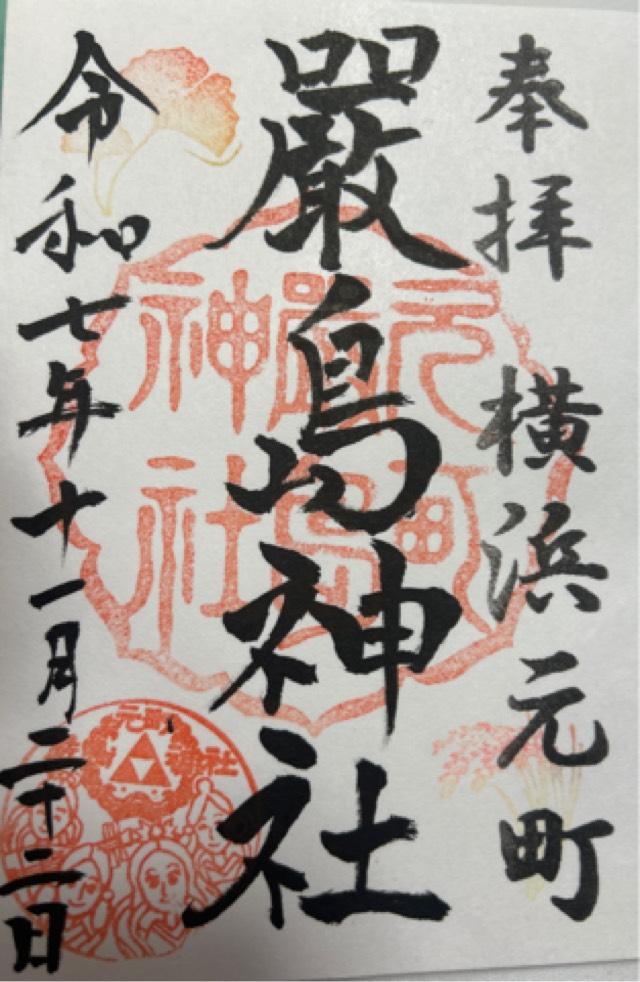 奉拝　横浜元町
嚴島神社
令和七年十一月二十二日
元町
嚴島
神社
元町
嚴島
神社